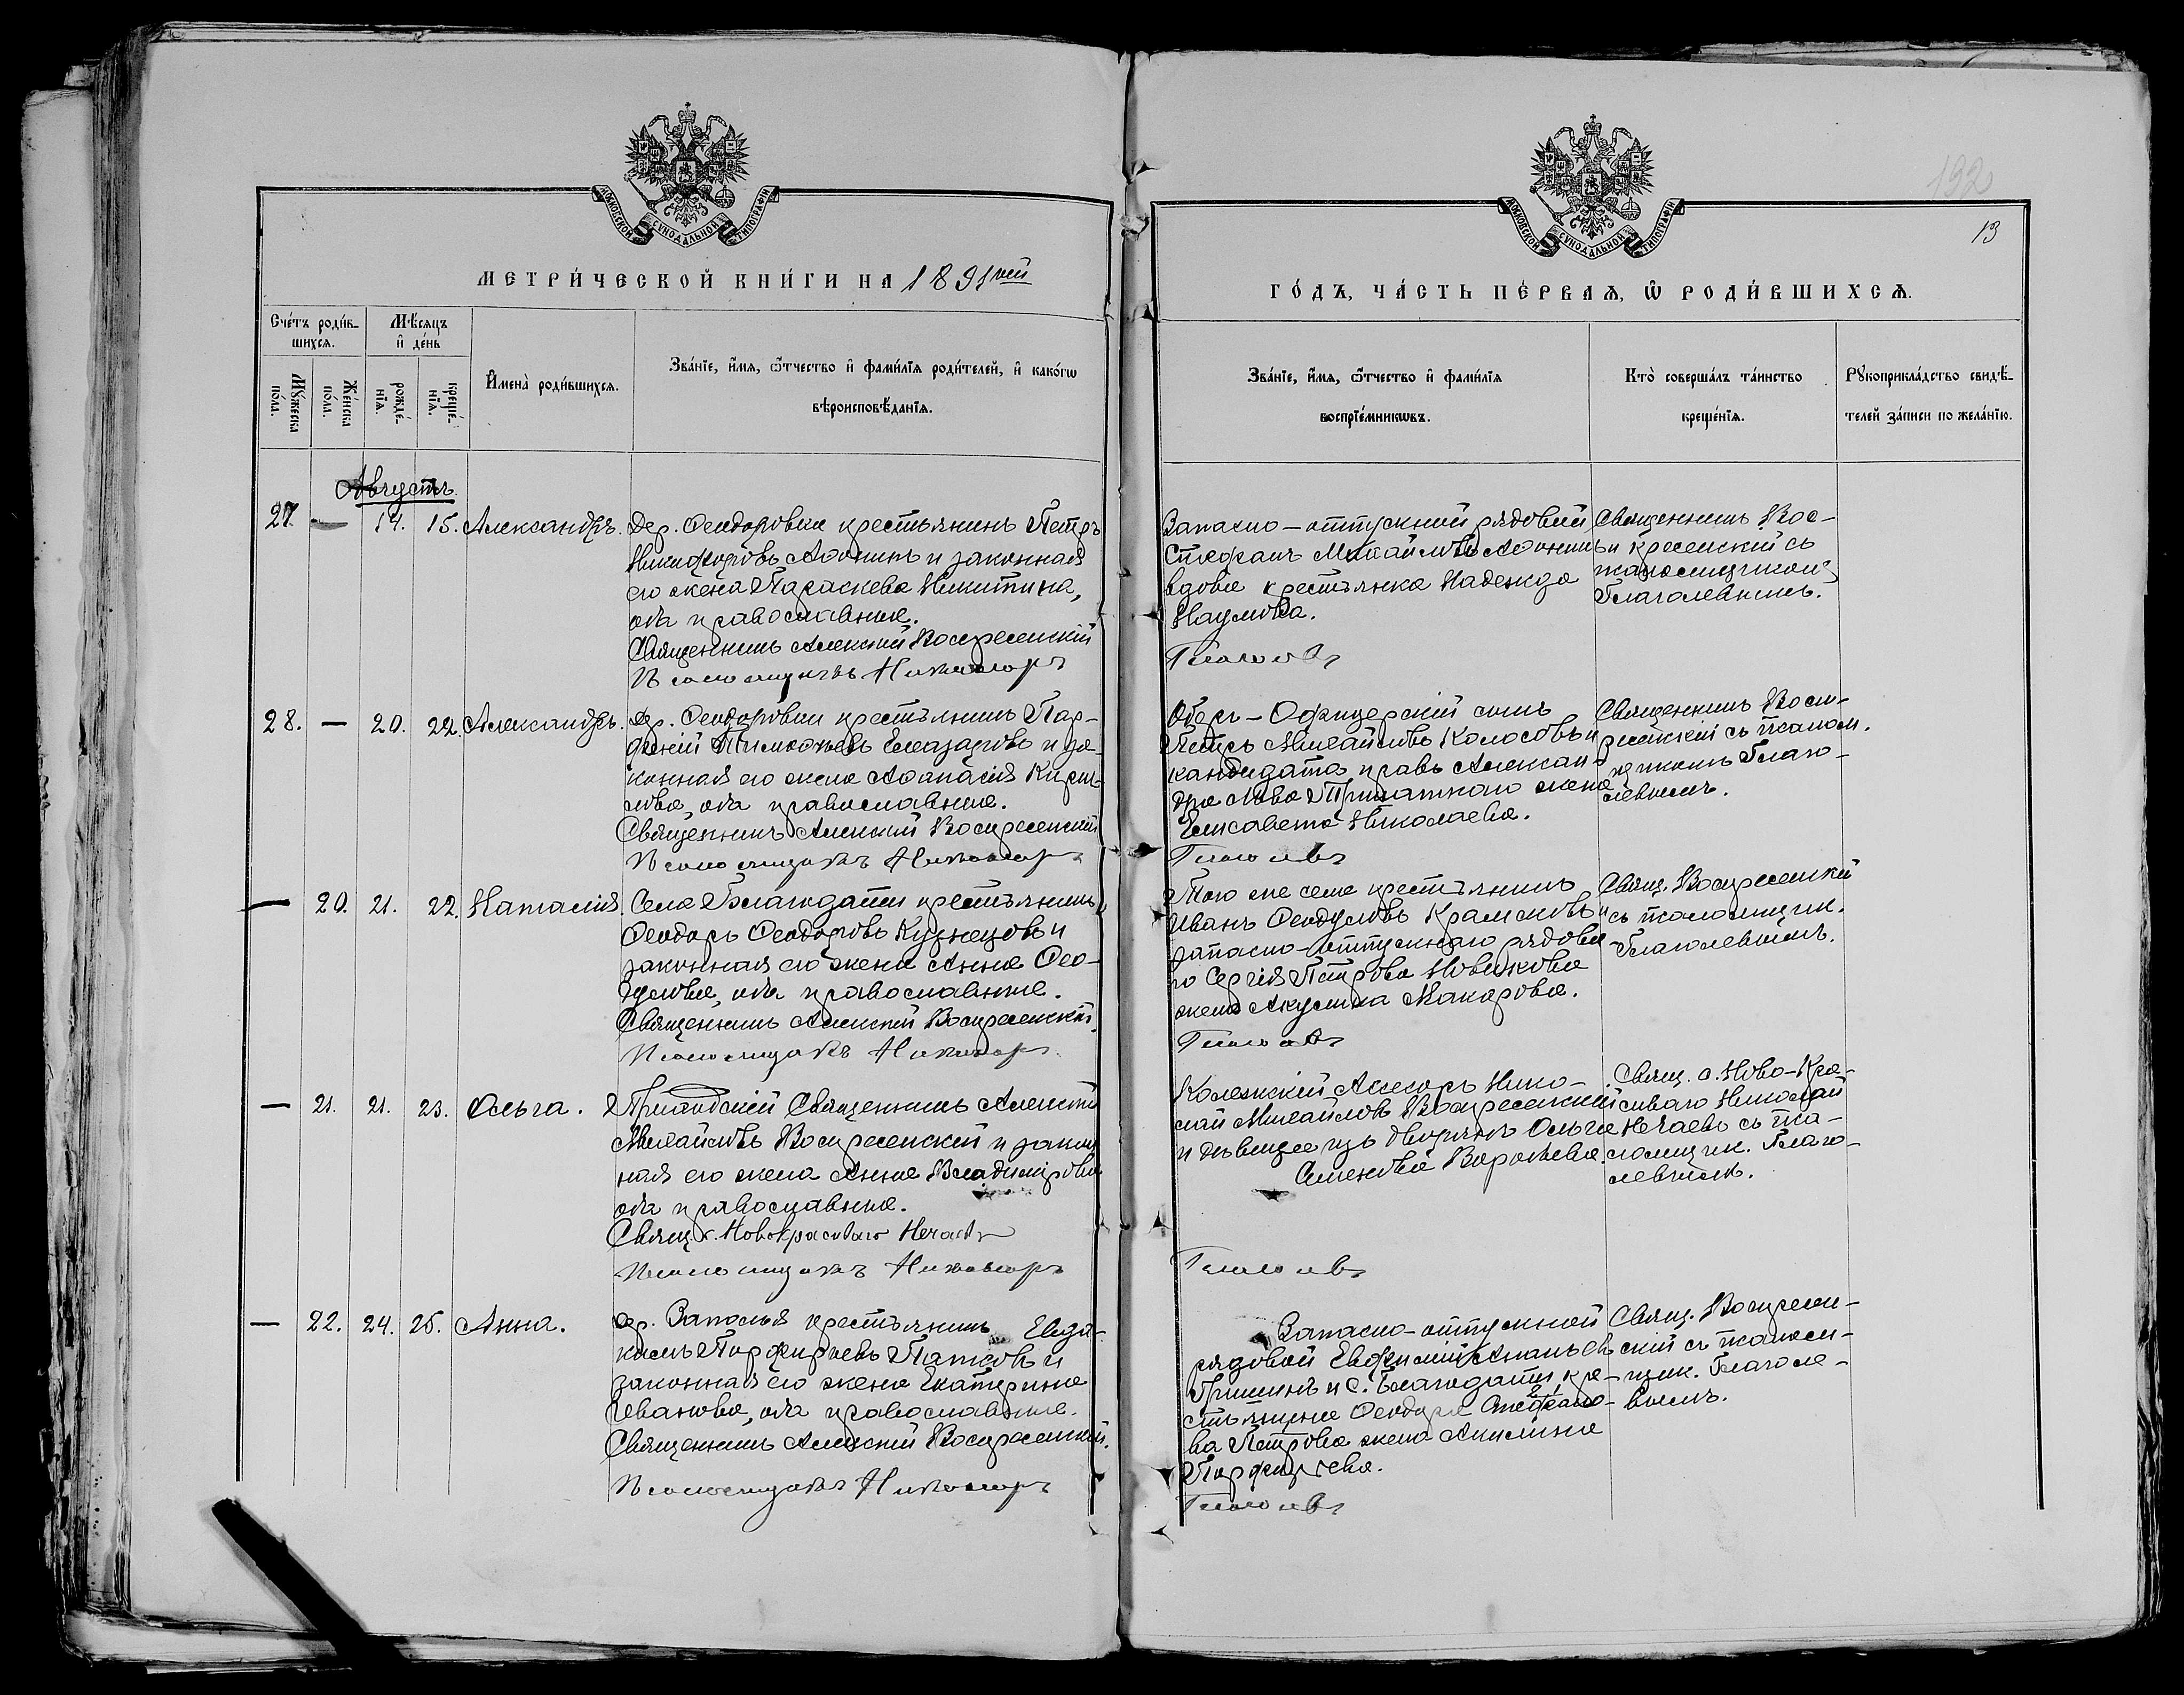 МОСКОВСКОЙ СѴНОДАЛЬНОЙ ТИПОГРАФІИ
МЕТРИ́ЧЕСКОЙ КНИ́ГИ НА 1891 ый
Сче́тъ роди́в-
шихся.
Мѣ́сяцъ
и҆ де́нь
Мꙋ́жеска
по́ла.
Же́нска
по́ла.
рожде́-
нїя.
креще́-
нїя.
И҆мена̀ роди́вшихся.
Зва́нїе, и҆́мя, ѻ҆́тчество и҆ фами́лїя роди́телей, и҆ како́гѡ
вѣроисповѣ́данїя.
Августъ
27. — 14. 15. Александръ. Дер. Ѳеодоровки крестьянинъ Петръ
Никифоровъ Аѳонинъ и законная
его жена Параскева Никитина,
оба православные.
Священникъ Алексий Воскресенскій
Псаломщикъ Никанор
28. — 20. 22. Александръ. Дер. Ѳеодоровки крестьянинъ Пар-
феній Тимоѳеевъ Елеазаровъ и за-
конная его жена Аѳанасія Кирил-
лова, оба православные.
Священникъ Алексий Воскресенскій
Псаломщикъ Никанор
— 20. 21. 22. Наталия. Села Благодати крестьянинъ
Ѳеодоръ Ѳеодоровъ Кузнецовъ и
законная его жена Анна Ѳео-
дулова, оба православные.
Священникъ Алексий Воскресенскій.
Псаломщикъ Никанор
— 21. 21. 23. Ольга. Приходскій Священникъ Алексий
Михайловъ Воскресенский и закон
ная его жена Анна Владимірова
оба православные.
Свящ. с. Новокрасиваго Нечаевъ
Псаломщикъ Никаноръ
— 22. 24. 25. Анна. Дер. Заполья крестьянинъ Евдо-
кимъ Порфирьевъ Папковъ и
законная его жена Екатерина
Иванова, оба православные.
Священникъ Алексий Воскресенский.
Псаломщикъ Никаноръ
192
13
МОСКОВСКОЙ СѴНОДАЛЬНОЙ ТИПОГРАФІИ
ГО́ДЪ, ЧА́СТЬ ПЕ́РВАЯ, Ѽ РОДИ́ВШИХСЯ.
Зва́нїе, и҆́мя, ѻ҆́тчество и҆ фами́лїя
воспрїе́мникѡвъ.
Кто̀ соверша́лъ та́инство
креще́нїя.
Рꙋкоприкла́дство свидѣ́-
телей за́писи по жела́нїю.
Запасно-отпускной рядовой
Стефанъ Михайловъ Аѳонинъ и
вдова крестьянка Надежда
Наумова.
Глаголевъ
Священникъ Вос-
кресенский съ
псаломщикомъ
Глаголевымъ.
Оберъ-Офицерскій сынъ
Петръ Михайловъ Колосовъ и
кандидата правъ Алексан-
дра Львова жена
Елисавета Николаева.
Глаголевъ
Священникъ Воск-
ресенский съ псалом.
щикомъ Глаго-
левымъ.
Того же села крестьянинъ
Иванъ Ѳеодуловъ Крамсковъ и
запасно-отпускнаго рядова-
го Сергія Петрова Новикова
жена Акулина Макарова.
Глаголевъ
Свящ. Воскресенский
съ псаломщик.
Глаголевымъ.
Колежский Асесоръ Нико-
лай Михайловъ Воскресенский
и дѣвица изъ дворянъ Ольга
Семенова Воропаева.
Глаголевъ
Свящ. с. Ново-Кра-
сиваго Николай
Нечаевъ съ пса-
ломщик. Глаго-
левымъ.
Запасно-отпускной
рядовой Евфимий Ананьевъ
Гришинъ и с. Благодати, кре-
стьянина Ѳеодора Стефано-
ва Петрова жена Акилина
Порфирьева.
Глаголевъ
Свящ. Воскресен-
ский съ псалом-
щик. Глаголе-
вымъ.